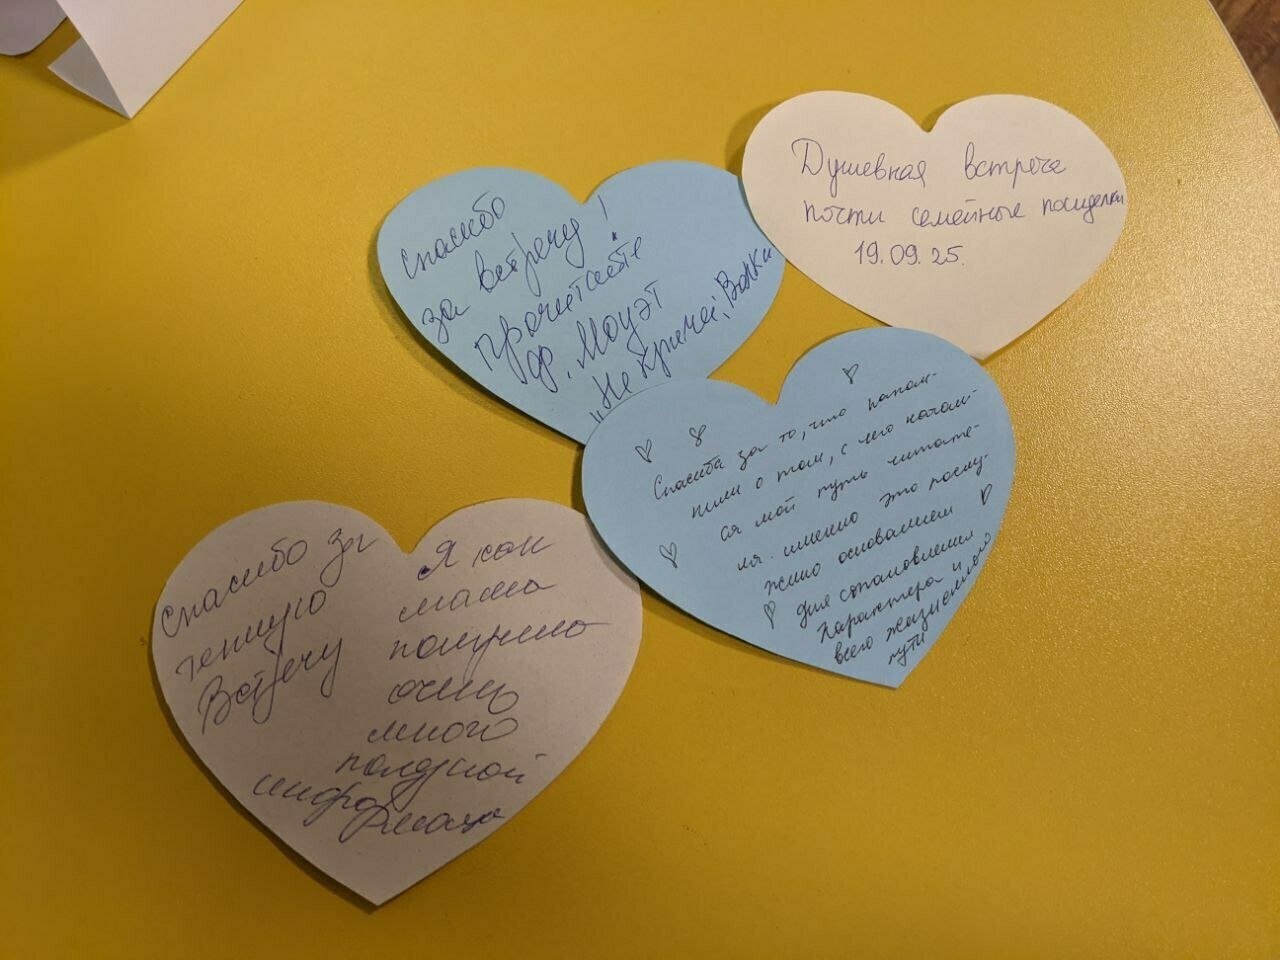 Душевная встреча
почти семейные посиделки
19.09.25.
спасибо
за встречу!
Прочитайте
Ф. Моуэт
„Не кричи, Волки
Спасиба за то, что напом-
нили о том, с чего начал-
ся мой путь читате-
ля. именно это послу-
жило основанием
для становления
характера и
всего жизненного
пути
Спасибо за
теплую
Встречу
Я как
мама
получила
очень
много
полезной
информаци